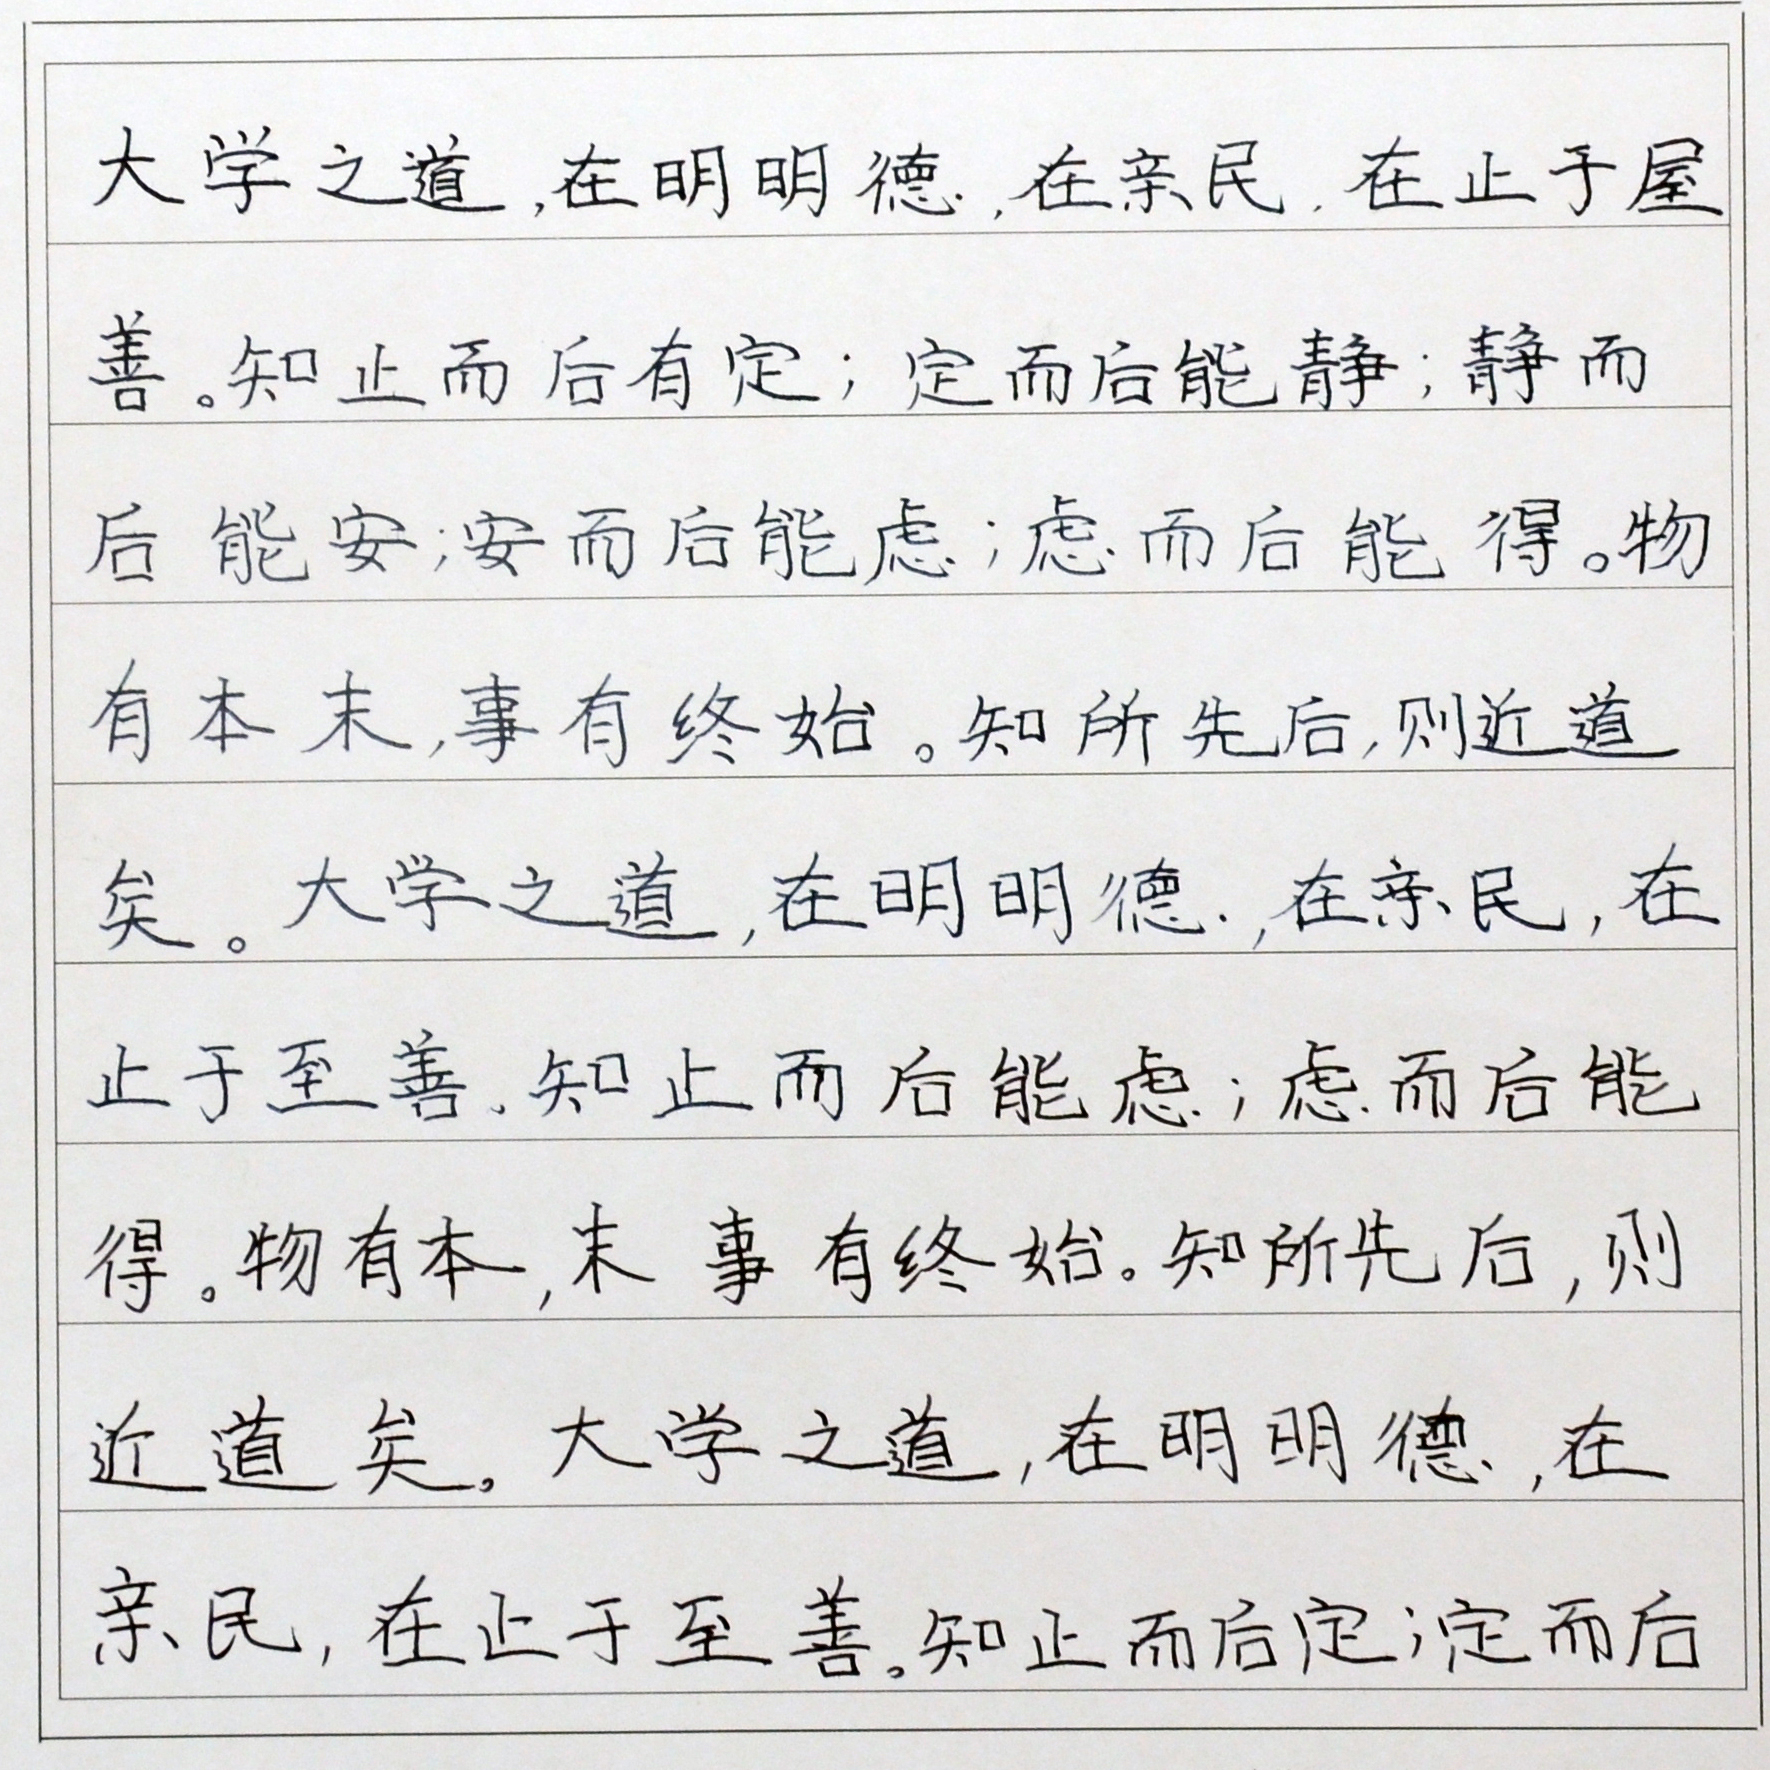 大学之道,在明明德,在亲民,在止于屋
善。知止而后有定;定而后能静;静而
后能安;安而后能虑;虑而后能得。物
有本末,事有终始。知所先后,则近道
矣。大学之道,在明明德,在亲民,在
止于至善、知止而后能虑;虑而后能
得。物有本,末事有终始。知所先后,则
近道矣。大学之道,在明明德,在
亲民,在止于至善。知止而后定;定而后